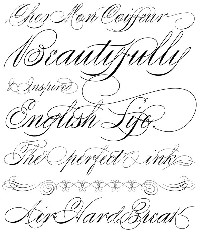 Chez Mon Coiffeur
Beautifully
& Inspired
English Life
The perfect ink
Air Hard Break